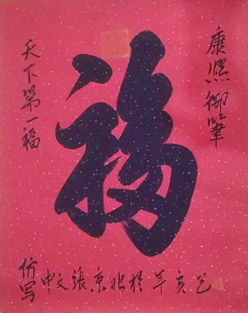 康熙御笔
福
天下第一福
乙亥年於北京張文中
仿写